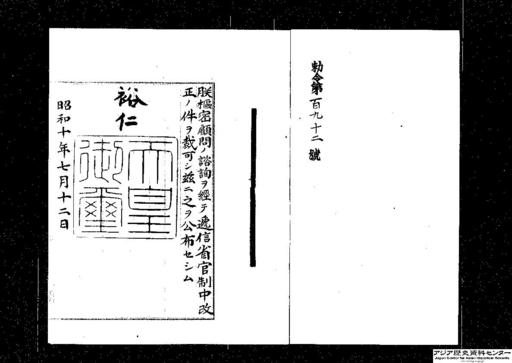 勅令第百九十二號
朕樞密顧問ノ諮詢ヲ經テ遞信省官制中改
正ノ件ヲ裁可シ茲ニ之ヲ公布セシム
裕仁
天皇
御璽
昭和十年七月十二日
アジア歴史資料センター
Japan Center for Asian Historical Records